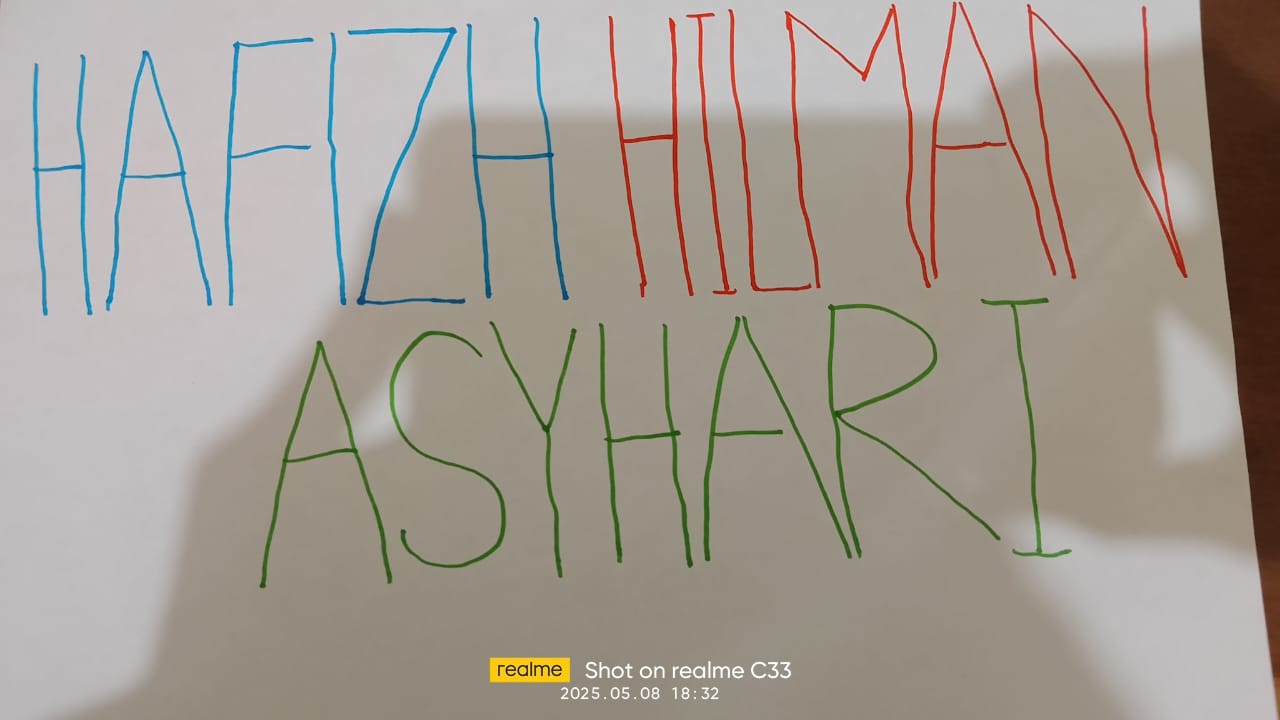 HAFIZH HILMAN
ASYHARI
realme Shot on realme C33
2025.05.08 18:32